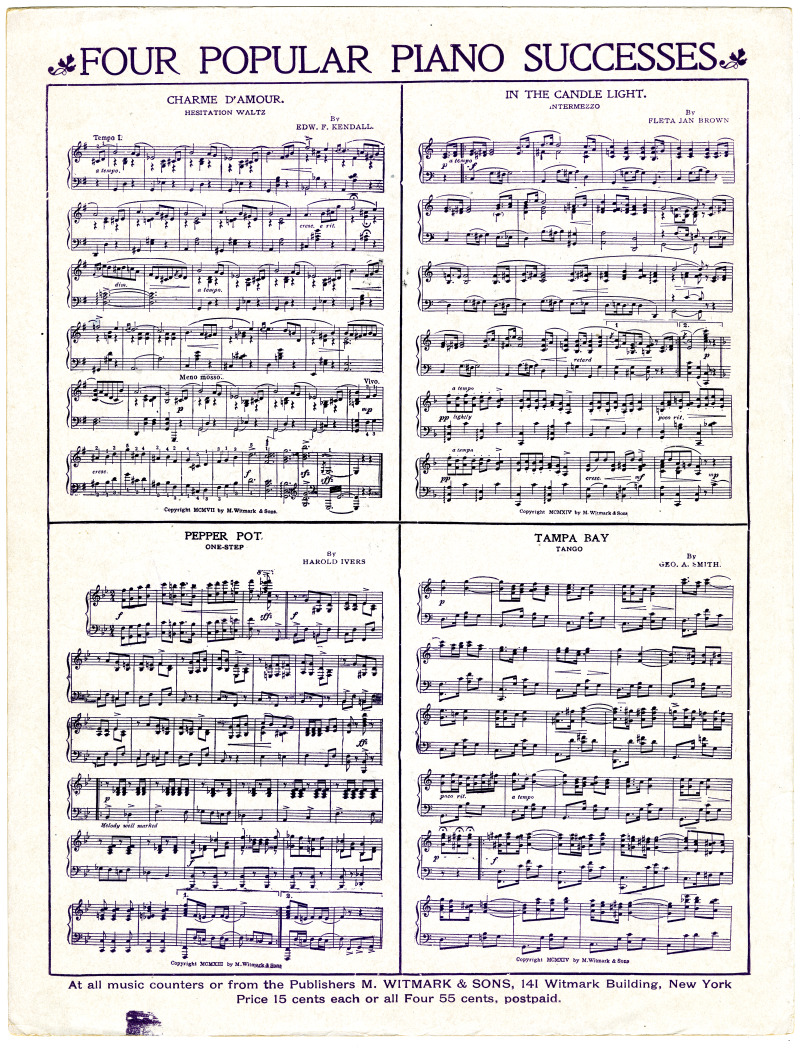 FOUR POPULAR PIANO SUCCESSES
CHARME D'AMOUR.
HESITATION WALTZ
By
EDW. F. KENDALL.
Tempo I.
a tempo.
cresc. e rit.
dim.
a tempo.
Meno mosso.
Vivo.
p
mp
cresc.
f
sfz
sffz
Copyright MCMVII by M. Witmark & Sons.
IN THE CANDLE LIGHT.
INTERMEZZO
By
FLETA JAN BROWN
a tempo
p
f
1.
2.
retard
p
a tempo
pp lightly
poco rit.
a tempo
pp
cresc.
mf
mp
Copyright MCMXIV by M. Witmark & Sons
PEPPER POT.
ONE-STEP
By
HAROLD IVERS
f
sffz
f
sffz
p
Melody well marked
1.
2.
Copyright MCMXIII by M. Witmark & Sons
TAMPA BAY
TANGO
By
GEO. A. SMITH.
p
poco rit.
a tempo
p
f
Copyright MCMXIV by M. Witmark & Sons
At all music counters or from the Publishers M. WITMARK & SONS, 141 Witmark Building, New York
Price 15 cents each or all Four 55 cents, postpaid.